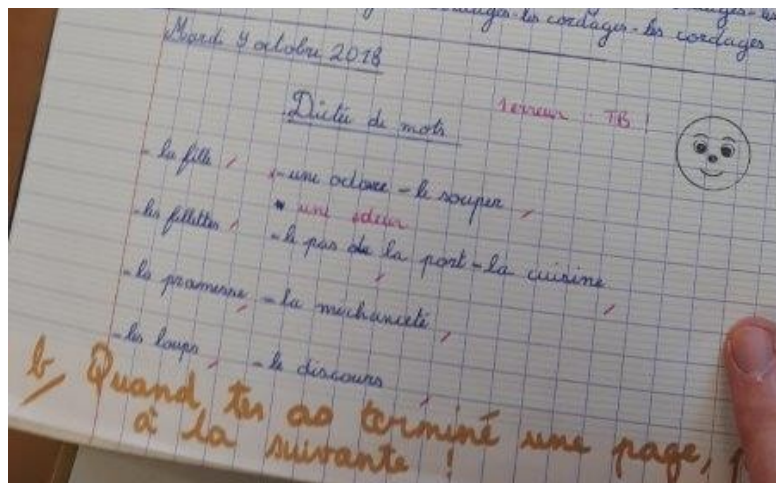 les cordages - les cordages
Mardi 9 octobre 2018
Dictée de mots
1 erreur TB !
- la fille - une odore - le souper
une odeur
- les fillettes - le pas de la port - la cuisine
- la promesse - la méchanceté
- les loups - le discours
b Quand tu as terminé une page,
à la suivante !